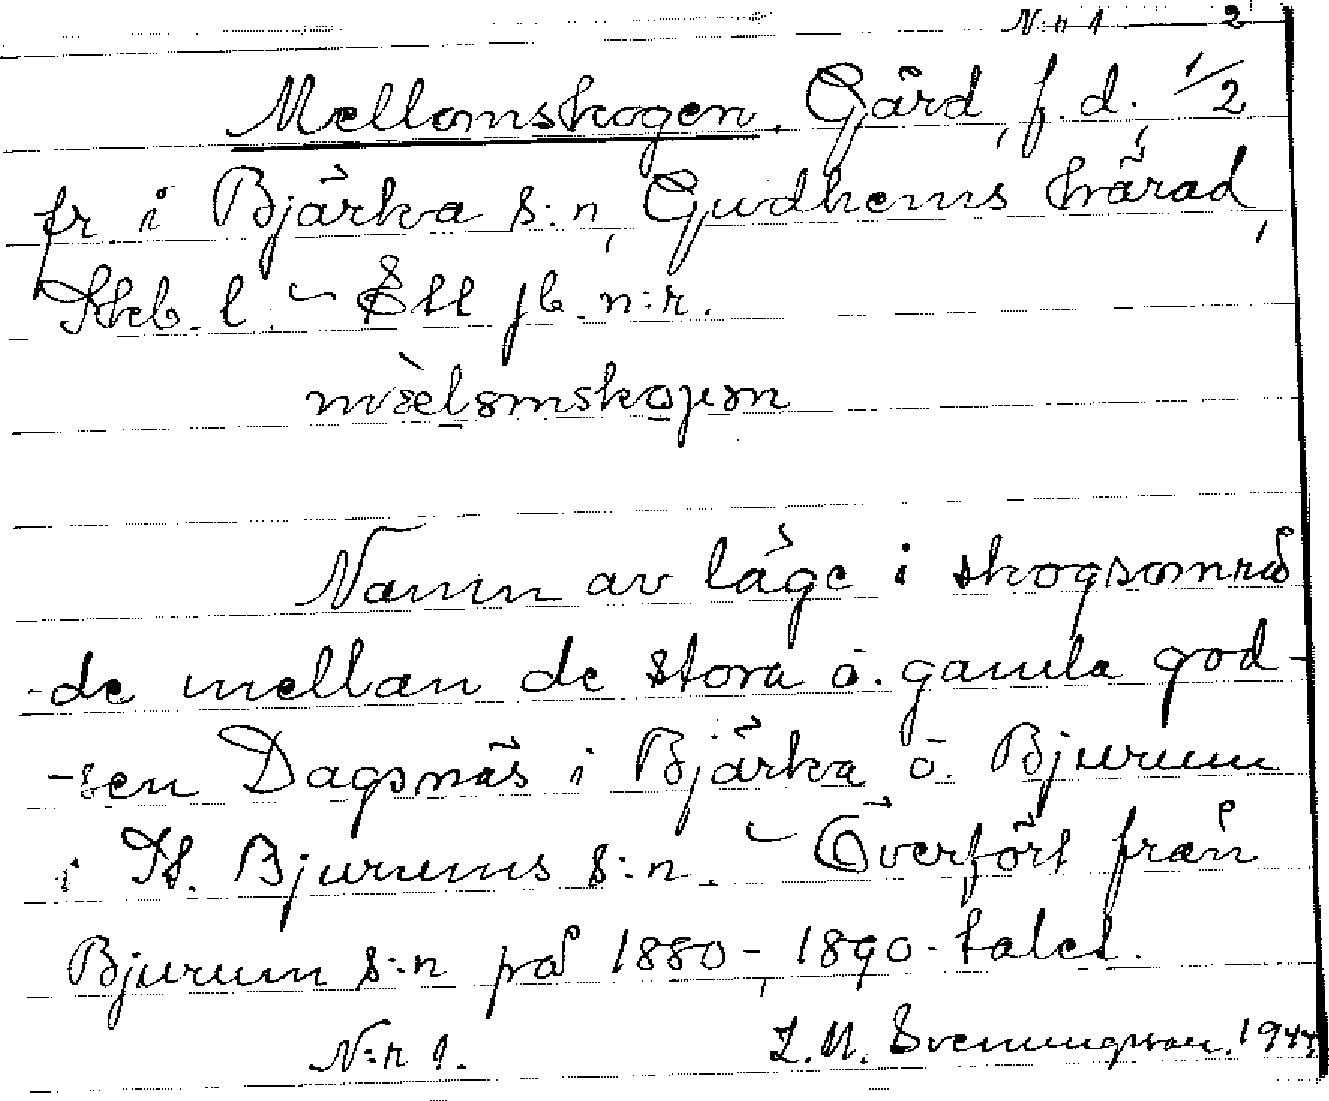 N:o 1 2
Mellomskogen. Gård, f.d. 1/2
fr. i Bjärka s:n, Gudhems härad,
Skb. l. – Ett jb. n:r.
Namn av läge i skogsområ
-de mellan de stora o. gamla god-
-sen Dagsnäs i Bjärka o. Bjurum
i St. Bjurums s:n. – Överfört från
Bjurum s:n på 1880-, 1890-talet.
N:r 1. L.M. Svenungsson. 1944.